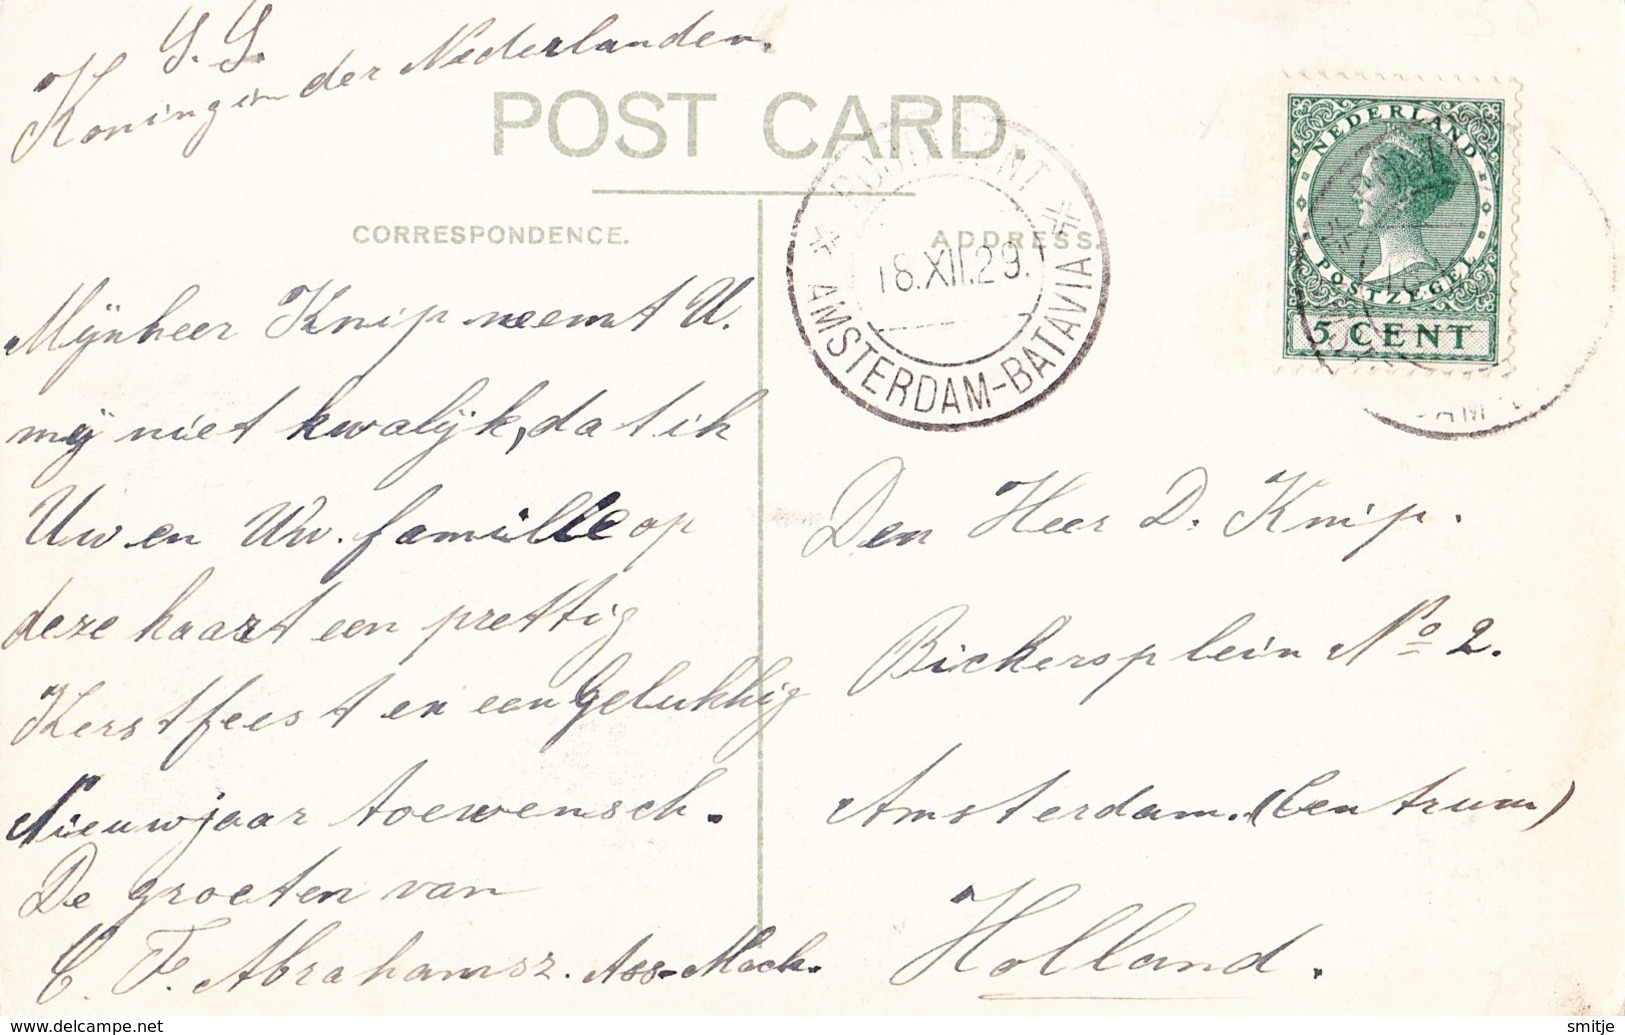 S.S.
Koningin der Nederlanden.
POST CARD.
CORRESPONDENCE.
ADDRESS.
POSTAGENT
18.XII.29.
AMSTERDAM-BATAVIA
NEDERLAND
POSTZEGEL
5 CENT
Mijnheer Knip neemt U.
mij niet kwalijk, dat ik
Uw en Uw. familie op
deze kaart een prettig
Kerstfeest en een gelukkig
Nieuwjaar toewensch.
De groeten van
C. F. Abrahamsz. Ass-Mach.
Den Heer D. Knip.
Bickersplein No 2.
Amsterdam. (Centrum)
Holland.
www.delcampe.net
smitje